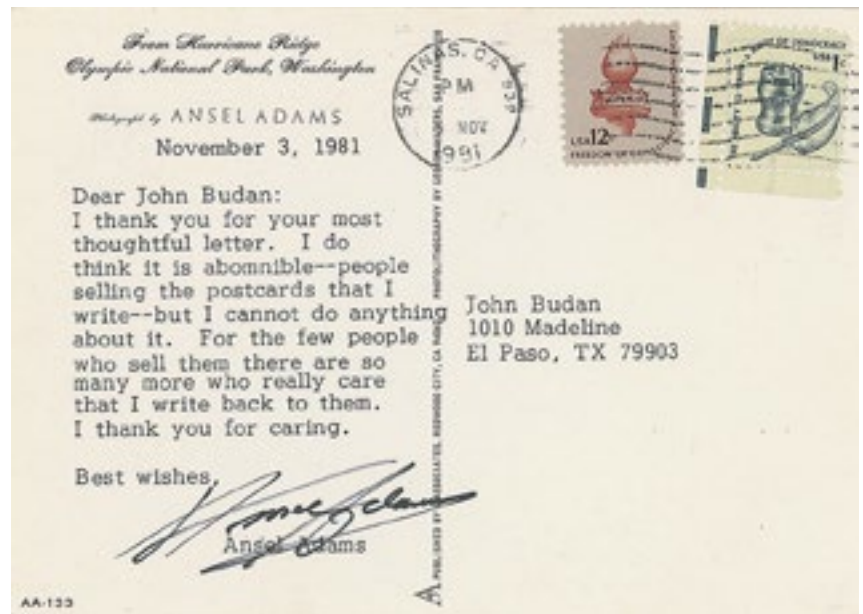 From Hurricane Ridge
Olympic National Park, Washington
Photograph by ANSEL ADAMS
November 3, 1981
Dear John Budan:
I thank you for your most
thoughtful letter. I do
think it is abomnible--people
selling the postcards that I
write--but I cannot do anything
about it. For the few people
who sell them there are so
many more who really care
that I write back to them.
I thank you for caring.
Best wishes,
Ansel Adams
Ansel Adams
AA-133
SALINAS, CA 939
PM
NOV
1981
USA 12c
USA 1c
John Budan
1010 Madeline
El Paso, TX 79903